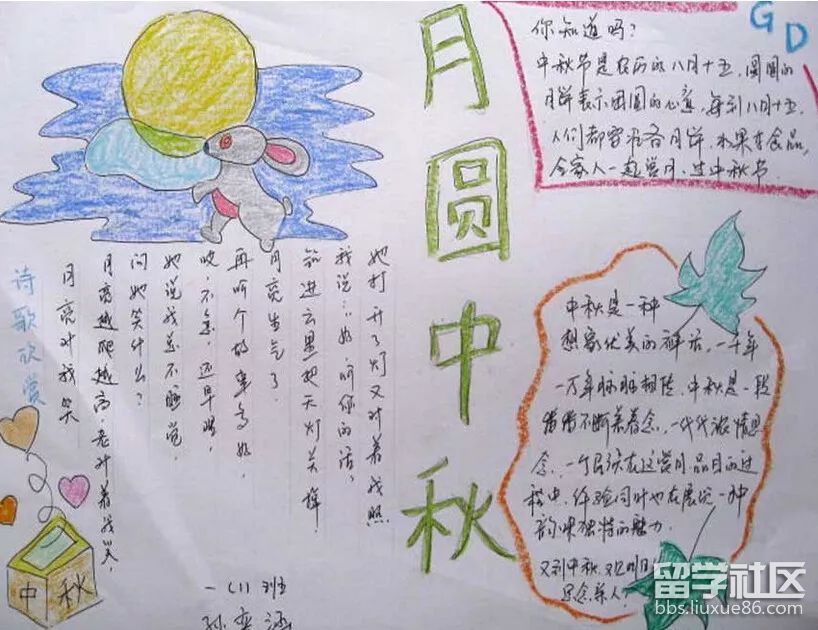 月圆中秋
G D
你知道吗？
中秋节是农历的八月十五，圆圆的
月饼表示团圆的心意，每到八月十五，
人们都要准备月饼、水果等食品，
全家人一起赏月、过中秋节.
诗歌欣赏
月亮对我笑
月亮越爬越高，老对着我笑，
问她笑什么？
她说我总不睡觉，
哎，不急 还早些，
再听个故事多好，
月亮生气了，
钻进云里把天灯关掉，
我说：好，听你的话，
她打开了灯又对着我照
中秋是一种
想象优美的神话，一千年
一万年脉脉相传，中秋是一段
，一代代浓情思
念，一个民族在这赏月品月的过
程中，体验同时也在展完一种
韵味独特的魅力.
又到中秋，又
思念亲人？
中秋
一(1)班
孙奕涵
留学社区
bbs.liuxue86.com